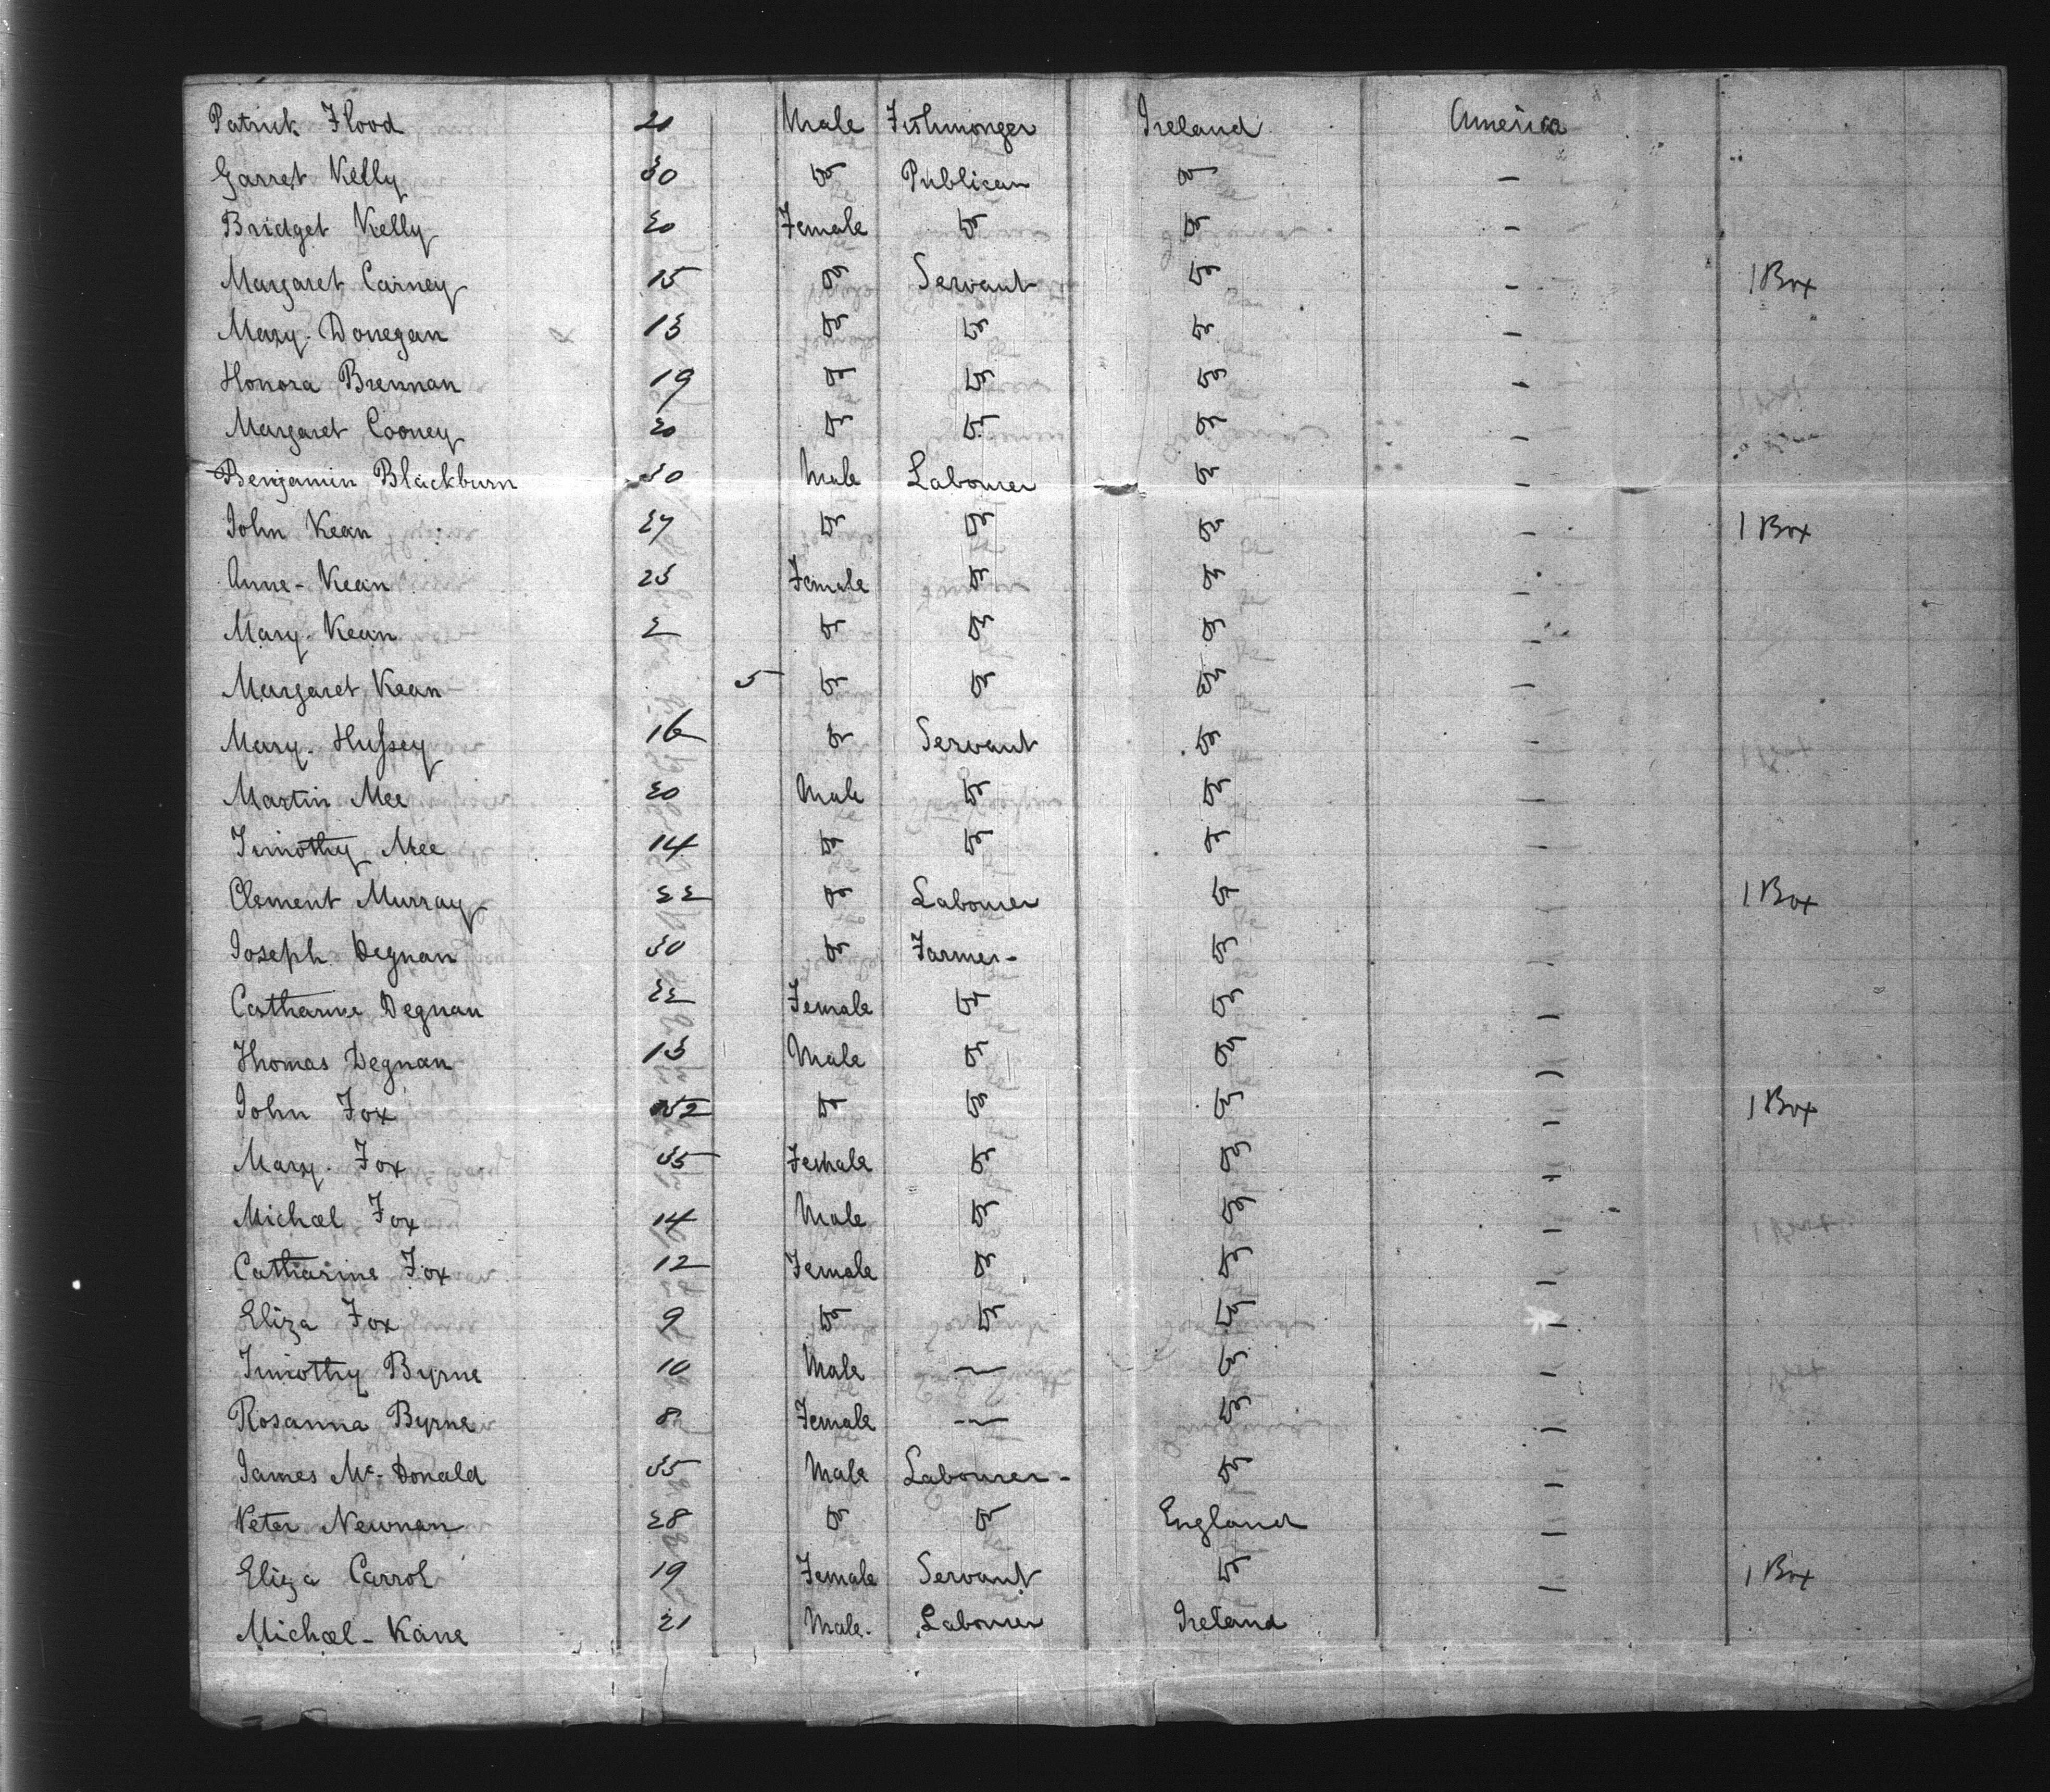 Patrick Flood 20 Male Fishmonger Ireland America
Garret Kelly 30 Do Publican Do -
Bridget Kelly 20 Female Do Do -
Margaret Carney 15 Do Servant Do - 1 Box
Mary. Donegan 13 Do Do Do -
Honora Brennan 19 Do Do Do -
Margaret Cooney 20 Do Do Do -
Benjamin Blackburn 30 Male Labourer Do -
John Kean 27 Do Do Do - 1 Box
Anne - Kean 23 Female Do Do -
Mary. Kean 2 Do Do Do -
Margaret Kean 5 Do Do Do -
Mary. Hussey 16 Do Servant Do -
Martin Mee 20 Male Do Do -
Timothy Mee 14 Do Do Do -
Clement Murray 22 Do Labourer Do - 1 Box
Joseph Degnan 30 Do Farmer - Do -
Catharine Degnan 22 Female Do Do -
Thomas Degnan 13 Male Do Do -
John Fox Do Do Do - 1 Box
Mary. Fox 35 Female Do Do -
Michael Fox 14 Male Do Do -
Catharine Fox 12 Female Do Do -
Eliza Fox 9 Do Do Do -
Timothy Byrne 10 Male — Do -
Rosanna Byrne 8 Female — Do -
James Mc. Donald 35 Male Labourer - Do -
Peter Newnan 28 Do Do England -
Eliza Carrol 19 Female Servant Do - 1 Box
Michael - Kane 21 Male. Labourer Ireland